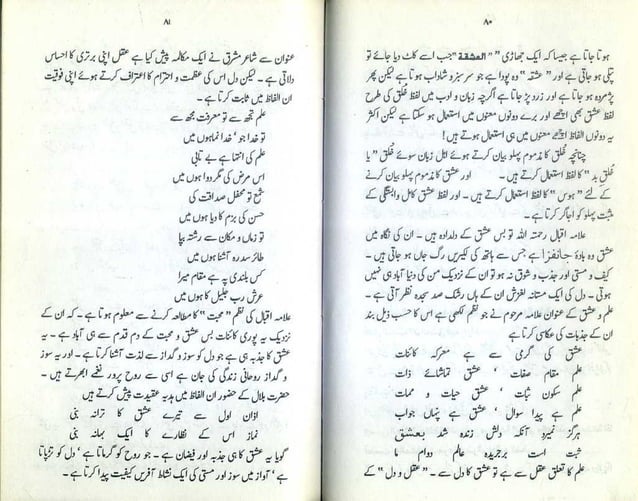 ۸۰
ہوتا جاتا ہے جیسا کہ ایک جھاڑی "العشقۃ" جب اسے کاٹ دیا جائے تو
پتلی ہو جاتی ہے اور "عشقہ" وہ پودا ہے جو سرسبز و شاداب ہوتا ہے لیکن پھر
پژمردہ ہو جاتا ہے اور زرد پڑ جاتا ہے اگرچہ زبان و ادب میں لفظ خُلق کی طرح
لفظ عشق بھی اچھے اور برے دونوں معنوں میں استعمال ہو سکتا ہے لیکن اکثر
یہ دونوں الفاظ اچھے معنوں میں ہی استعمال ہوتے ہیں!
چنانچہ خُلق کا مذموم پہلو بیان کرتے ہوئے اہل زبان سوئے خُلق "یا
خُلق بد" کا لفظ استعمال کرتے ہیں۔ اور عشق کا مذموم پہلو بیان کرنے
کے لئے "ہوس" کا لفظ استعمال کرتے ہیں۔ اور لفظ عشق کامل وابستگی کے
مثبت پہلو کو اجاگر کرتا ہے۔
علامہ اقبال رحمتہ اللہ تو بس عشق کے دلدادہ ہیں۔ ان کی نگاہ میں
عشق وہ بادۂ جانفزا ہے جس سے ہاتھ کی لکیریں رگ جاں ہو جاتی ہیں۔
کیف و مستی اور جذب و شوق نہ ہو تو ان کے نزدیک من کی دنیا آباد ہی نہیں
ہوتی۔ دل کی ایک مستانہ لغزش ان کے ہاں رشک صد سجدہ نظر آتی ہے۔
علم و عشق کے عنوان علامہ مرحوم نے جو نظم لکھی ہے اس کا حسب ذیل بند
ان کے جذبات کی عکاسی کرتا ہے
عشق کی گرمی سے ہے معرکہ کائنات
علم مقام صفات، عشق تماشائے ذات
عشق سکون ثبات، عشق حیات و ممات
علم ہے پیدا سوال، عشق ہے پنہاں جواب
ہرگز نمیرد آنکہ دلش زندہ شد بعشق
ثبت است برجریدہ عالم دوام ما
علم کا تعلق عقل سے ہے تو عشق کا دل سے۔ "عقل و دل" کے
۸۱
عنوان سے شاعر مشرق نے ایک مکالمہ پیش کیا ہے عقل اپنی برتری کا احساس
دلاتی ہے۔ لیکن دل اس کی عظمت و احترام کا اعتراف کرتے ہوئے اپنی فوقیت
ان الفاظ میں ثابت کرتا ہے۔
علم تجھ سے تو معرفت مجھ سے
تو خدا جو، خدا نما ہوں میں
علم کی انتہا ہے بے تابی
اس مرض کی مگر دوا ہوں میں
شمع تو محفل صداقت کی
حسن کی بزم کا دیا ہوں میں
تو زمان و مکان سے رشتہ بپا
طائر سدرہ آشنا ہوں میں
کس بلندی پہ ہے مقام میرا
عرش رب جلیل کا ہوں میں
علامہ اقبال کی نظم "محبت" کا مطالعہ کرنے سے معلوم ہوتا ہے۔ کہ ان کے
نزدیک یہ پوری کائنات بس عشق و محبت کے دم قدم سے ہی آباد ہے۔ یہ
عشق کا جذبہ ہی ہے جو دل کو سوز و گداز سے لذت آشنا کرتا ہے۔ اور یہ سوز
و گداز روحانی زندگی کی جان ہے اسی سے روح پرور نغمے ابھرتے ہیں۔
حضرت بلال کے حضور ان الفاظ میں ہدیہ عقیدت پیش کرتے ہیں
اذان اول سے تیرے عشق کا ترانہ بنی
نماز اس کے نظارے کا ایک بہانہ بنی
گویا یہ عشق کا ہی جذبہ اور فیضان ہے۔ جو روح کو گرماتا ہے، دل کو تڑپاتا
ہے، آواز میں سوز اور مستی کی ایک نشاط آفریں کیفیت پیدا کرتا ہے۔